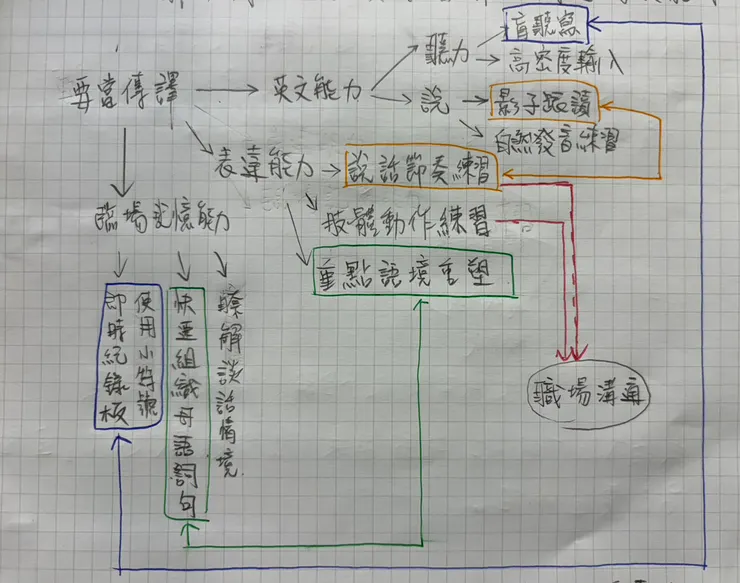 盲聽寫
聽力
高密度輸入
要當傳譯
英文能力
說
影子跟讀
自然發音練習
表達能力
說話節奏練習
臨場記憶能力
肢體動作練習
重點語境重塑
使用小符號
即時紀錄板
快速組織母語詞句
瞭解談話情境
職場溝通